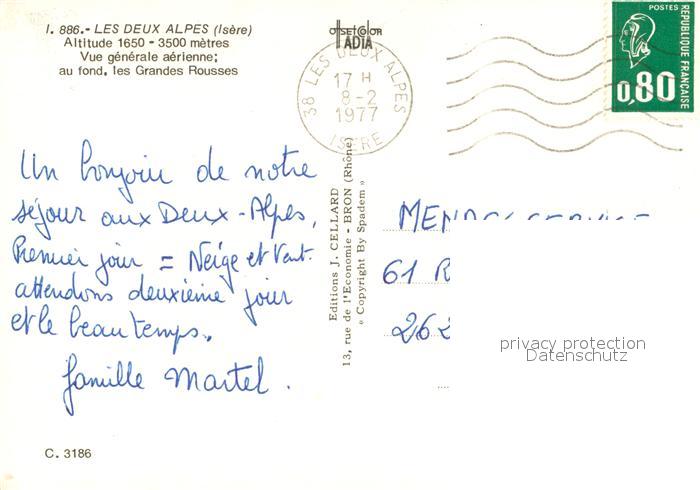 I. 886.- LES DEUX ALPES (Isère)
Altitude 1650 - 3500 mètres
Vue générale aérienne;
au fond, les Grandes Rousses
offsetcolor
IADIA
38 LES DEUX ALPES
17 H
8-2
1977
ISÈRE
POSTES
REPUBLIQUE FRANÇAISE
0,80
Un bonjour de notre
séjour aux Deux-Alpes,
Premier jour = Neige et Vent.
attendons deuxième jour
et le beau temps.
famille Martel.
Editions J. CELLARD
13, rue de l'Economie - BRON (Rhône)
« Copyright By Spadem »
61 R
262
privacy protection
Datenschutz
C. 3186